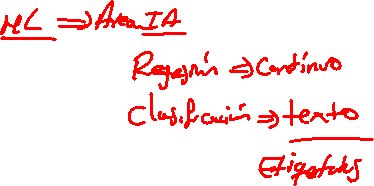 ML ⇒ Area IA
Regresión ⇒ Continuo
Clasificación ⇒ texto
Etiquetas